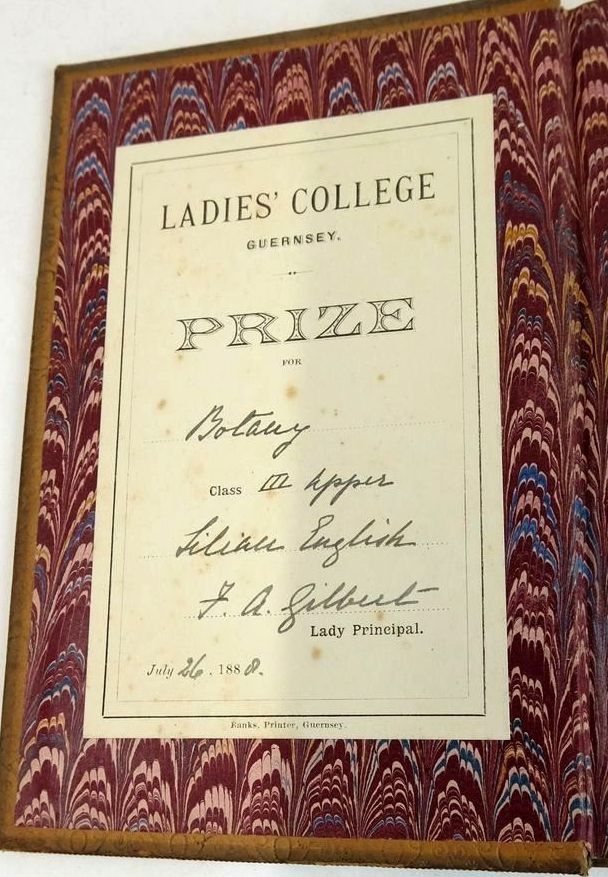 LADIES' COLLEGE
GUERNSEY.
PRIZE
FOR
Botany
Class III Upper
Lilian English
F. A. Gilbert
Lady Principal.
July 26. 1888.
Banks, Printer, Guernsey.